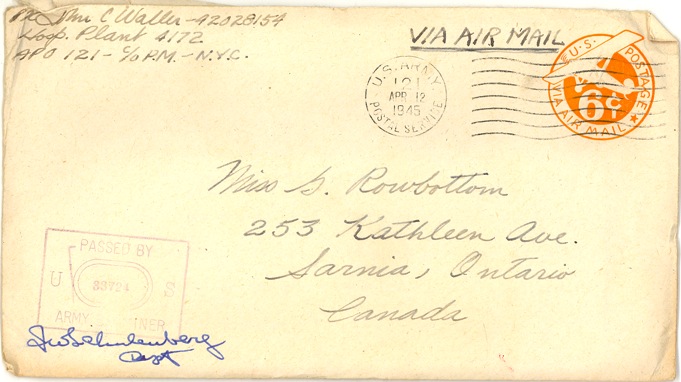 Pvt. John C Waller - 42028154
Hosp. Plant 4172
APO 121 - c/o P.M. - N.Y.C.
VIA AIR MAIL
U.S. ARMY
121
APR 12
1945
POSTAL SERVICE
U.S. POSTAGE
6¢
VIA AIR MAIL
Miss G. Rowbottom
253 Kathleen Ave.
Sarnia, Ontario
Canada
PASSED BY
U S
33724
ARMY INER
Capt